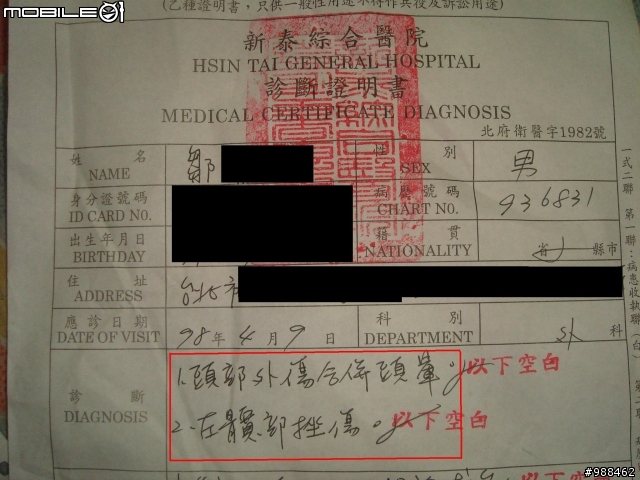 MOBILE01
(乙種證明書，只供一般性用途不得作兵役及訴訟用途)
新泰綜合醫院
HSIN TAI GENERAL HOSPITAL
診斷證明書
MEDICAL CERTIFICATE DIAGNOSIS
北府衛醫字1982號
姓名 鄒 性別 男
NAME SEX
身分證號碼 病歷號碼 936831
ID CARD NO. CHART NO.
出生年月日 籍貫 省 縣市
BIRTHDAY NATIONALITY
住址 台北市
ADDRESS
應診日期 98年4月9日 科別 外科
DATE OF VISIT DEPARTMENT
診斷 1.頭部外傷合併頭暈。以下空白
DIAGNOSIS 2.左髖部挫傷。以下空白
以下空白
一式二聯 第一聯：病患收執聯
#988462